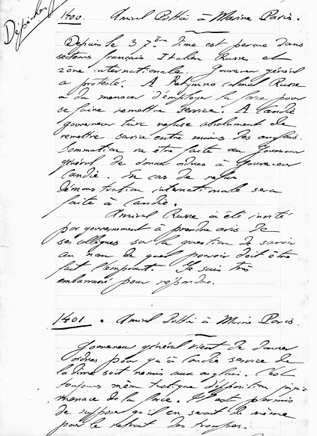 Dépêches
1400. Amiral Pottier à Marine Paris.
Depuis le 3 7bre dîme est perçue dans
secteurs français Italien Russe et
zône internationale. Gouverneur général
a protesté. A Retymno colonel Russe
a dû menacer d'employer la force pour
se faire remettre service. A Candie
gouverneur turc refuse absolument de
remettre service entre mains des anglais.
Sommation va être faite au Gouverneur
général de donner ordres à Gouverneur
Candie. En cas de refus
démonstration internationale sera
faite à Candie.
Amiral Russe a été invité
par gouvernement à prendre avis de
ses collègues sur la question de savoir
au nom de quel pouvoir doit être
fait l'emprunt. Je suis très
embarrassé pour répondre.
1401. Amiral Pottier à Marine Paris.
Gouverneur général vient de donner
ordres pour qu'à Candie service de
la dîme soit remis aux anglais. C'est
toujours même tactique d'opposition jusqu'à
menace de la force. Il est permis
de supposer qu'il en serait de même
pour le retrait des troupes.